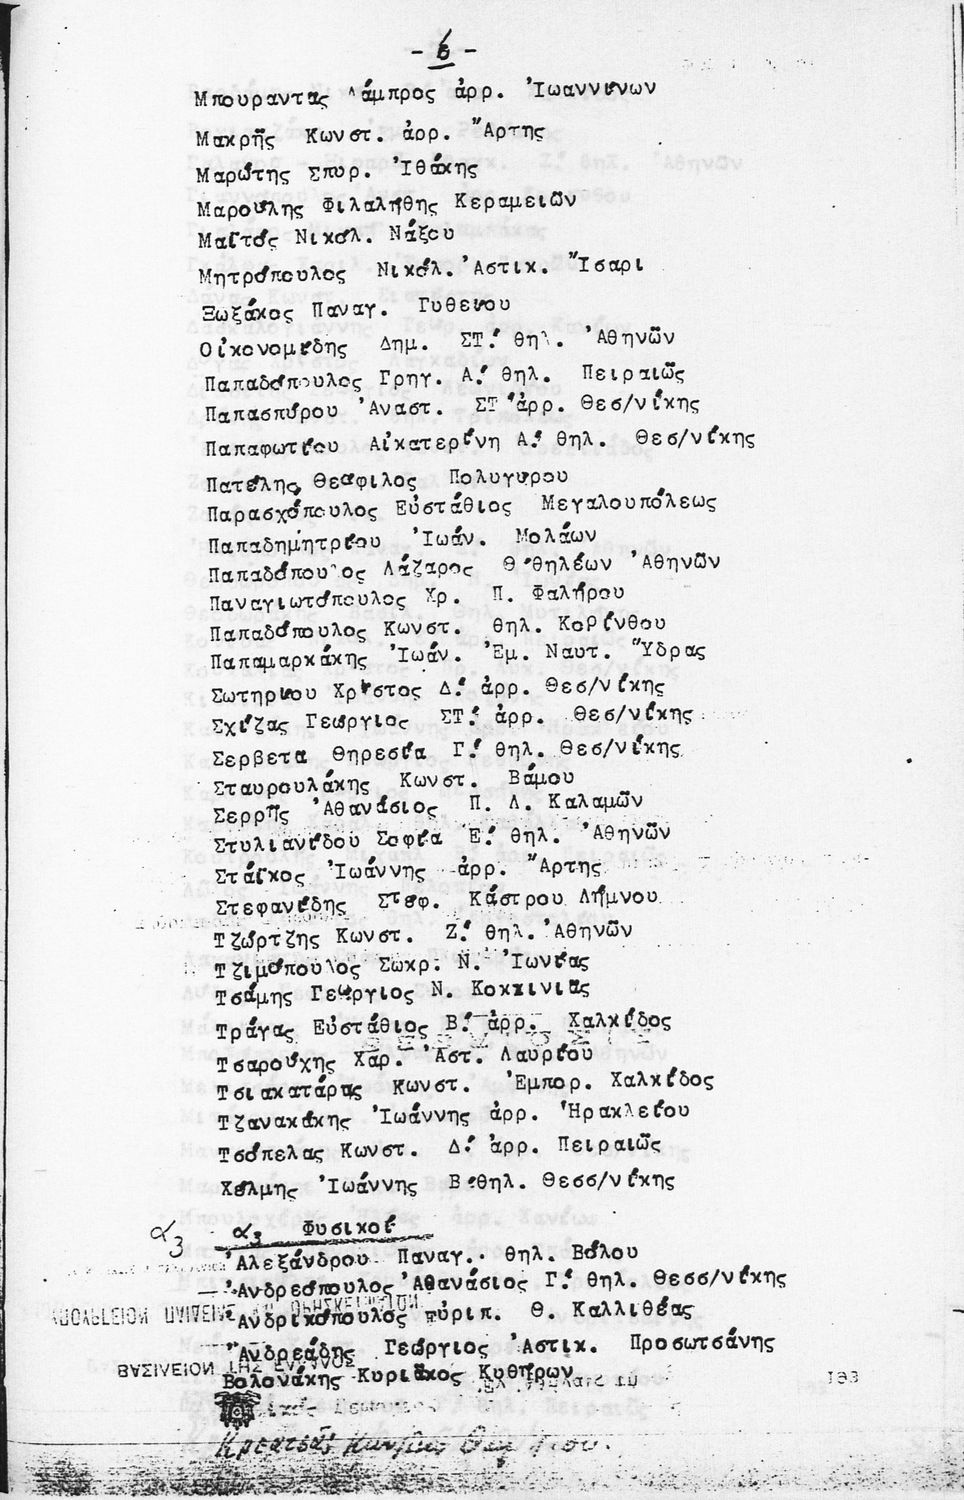 - 6 -
Μπουραντας Λάμπρος ἀρρ. Ἰωαννίνων
Μακρῆς Κωνστ. ἀρρ. Ἄρτης
Μαρώτης Σπυρ. Ἰθάκης
Μαρούλης Φιλαλήθης Κεραμειῶν
Μαϊτός Νικόλ. Νάξου
Μητρόπουλος Νικόλ. Ἀστικ. Ἴσαρι
Ξωξάκος Παναγ. Γυθείου
Οἰκονομίδης Δημ. ΣΤ.΄ θηλ. Ἀθηνῶν
Παπαδόπουλος Γρηγ. Α.΄ θηλ. Πειραιῶς
Παπασπύρου Ἀναστ. ΣΤ΄ ἀρρ. Θεσ/νίκης
Παπαφωτίου Αἰκατερίνη Α.΄ θηλ. Θεσ/νίκης
Πατέλης Θεόφιλος Πολυγύρου
Παρασχόπουλος Εὐστάθιος Μεγαλουπόλεως
Παπαδημητρίου Ἰωάν. Μολάων
Παπαδόπουλος Λάζαρος Θ΄ θηλέων Ἀθηνῶν
Παναγιωτόπουλος Χρ. Π. Φαλήρου
Παπαδόπουλος Κωνστ. θηλ. Κορίνθου
Παπαμαρκάκης Ἰωάν. Ἐμ. Ναυτ. Ὕδρας
Σωτηρίου Χρίστος Δ.΄ ἀρρ. Θεσ/νίκης
Σχίζας Γεώργιος ΣΤ.΄ ἀρρ. Θεσ/νίκης
Σερβετα Θηρεσία Γ.΄ θηλ. Θεσ/νίκης
Σταυρουλάκης Κωνστ. Βάμου
Σερρῆς Ἀθανάσιος Π. Λ. Καλαμῶν
Στυλιανίδου Σοφία Ε.΄ θηλ. Ἀθηνῶν
Στάϊκος Ἰωάννης ἀρρ. Ἄρτης
Στεφανίδης Στεφ. Κάστρου Λήμνου
Τζώρτζης Κωνστ. Ζ.΄ θηλ. Ἀθηνῶν
Τζιμόπουλος Σωκρ. Ν. Ἰωνίας
Τσάμης Γεώργιος Ν. Κοκκινιᾶς
Τράγας Εὐστάθιος Β.΄ ἀρρ. Χαλκίδος
Τσαρούχης Χαρ. Ἀστ. Λαυρίου
Τσιακατάρας Κωνστ. Ἐμπορ. Χαλκίδος
Τζανακάκης Ἰωάννης ἀρρ. Ἡρακλείου
Τσόπελας Κωνστ. Δ.΄ ἀρρ. Πειραιῶς
Χέλμης Ἰωάννης Β΄ θηλ. Θεσσ/νίκης
α3 α3 Φυσικοί
Ἀλεξάνδρου Παναγ.. θηλ. Βόλου
Ἀνδρεόπουλος Ἀθανάσιος Γ.΄ θηλ. Θεσσ/νίκης
Ἀνδρικόπουλος Εὐριπ. Θ. Καλλιθέας
Ἀνδρεάδης Γεώργιος Ἀστικ. Προσωτσάνης
Βολονάκης Κυριᾶκος Κυθήρων